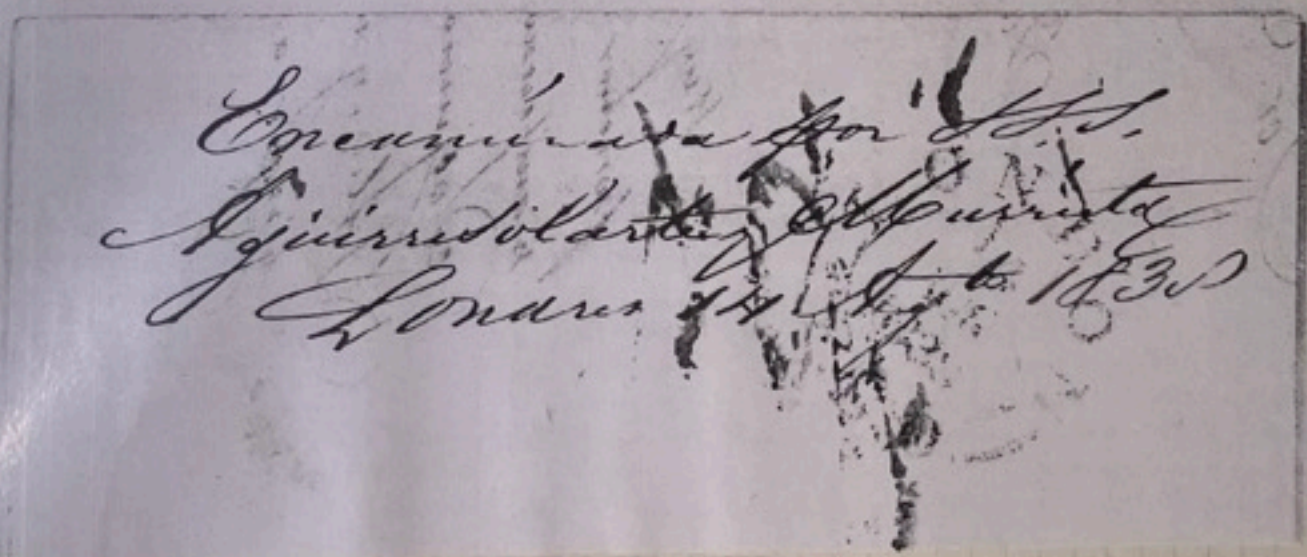 Encaminada por SSS.
Aguirre Solarte y Murrieta
Londres 14 Agto 1838